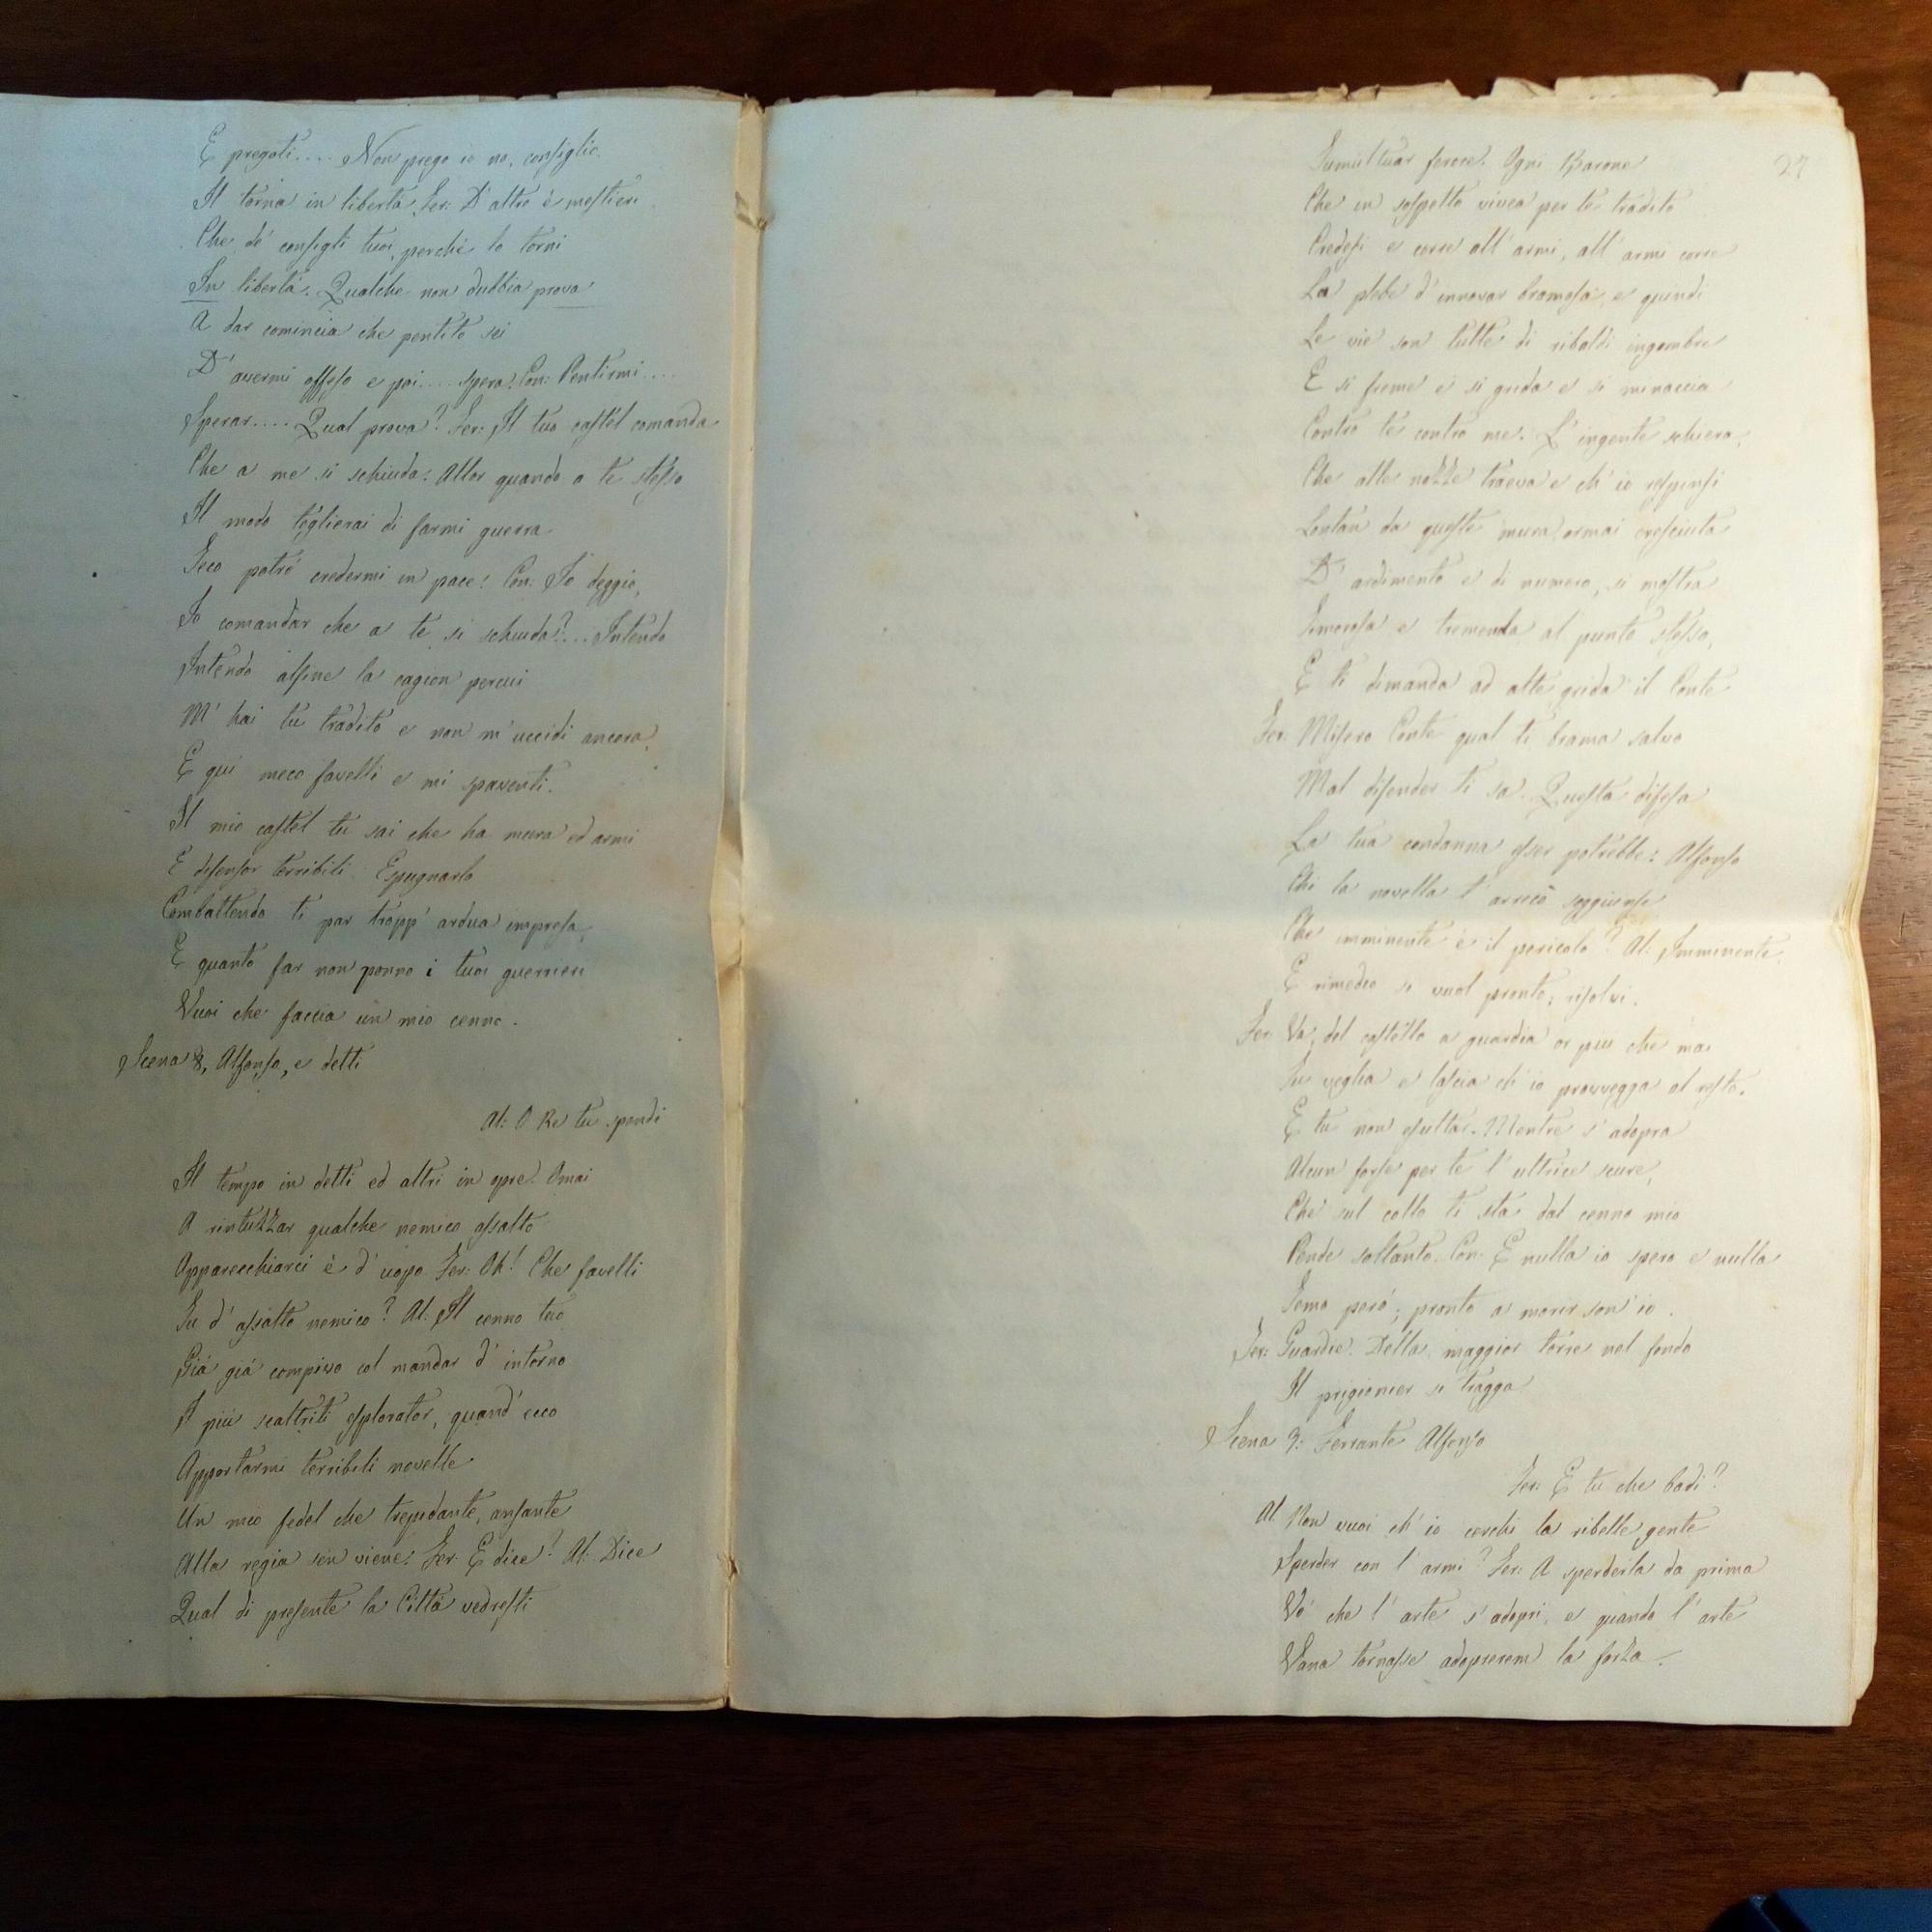 E pregoti.... Non prego io no, consiglio.
Il torna in libertà. Fer: D'altro è mestieri
Che de' consigli tuoi, perché lo torni
In libertà. Qualche non dubbia prova
A dar comincia che pentito sei
D'avermi offeso e poi.... spera. Con: Pentirmi....
Sperar.... Qual prova? Fer: Il tuo castel comanda
Che a me si schiuda: Allor quando a te stesso
Il modo toglierai di farmi guerra
Teco potrò credermi in pace! Con: Io deggio,
Io comandar che a te si schiuda?... Intendo
Intendo alfine la cagion percui
M'hai tu tradito e non m'uccidi ancora,
E qui meco favelli e mi spaventi.
Il mio castel tu sai che ha mura ed armi
E difensor terribili. Espugnarlo
Combattendo ti par tropp'ardua impresa,
E quanto far non ponno i tuoi guerrieri
Vuoi che faccia un mio cenno.
Scena 8, Alfonso, e detti
Al: O Re tu spendi
Il tempo in detti ed altri in opre. Omai
A rintuzzar qualche nemico assalto
Apparecchiarci è d'uopo. Fer: Oh! Che favelli
Tu d'assalto nemico? Al: Il cenno tuo
Già già compivo col mandar d'intorno
I più scaltriti esplorator, quand'ecco
Apportarmi terribili novelle
Un mio fedel che trepidante, ansante
Alla regia sen viene. Fer: E dice? Al: Dice
Qual di presente la Città vedresti
27
Tumultuar feroce. Ogni Barone
Che in sospetto vivea per te tradito
Credesi e corse all'armi, all'armi corse
La plebe d'innovar bramosa, e quindi
Le vie son tutte di ribaldi ingombre
E si freme e si grida e si minaccia
Contro te contro me. L'ingente schiera,
Che alle nozze traeva e ch'io respinsi
Lontan da queste mura, ormai cresciuta
D'ardimento e di numero, si mostra
Timorosa e tremenda al punto stesso,
E ti dimanda ad alte grida il Conte
Fer. Misero Conte qual ti brama salvo
Mal difender ti sa. Questa difesa
La tua condanna esser potrebbe: Alfonso
Chi la novella t'arrecò soggiunse
Che imminente è il pericolo? Al: Imminente.
E rimedio si vuol pronto; risolvi.
Fer. Va, del castello a guardia or più che mai
Tu veglia e lascia ch'io provvegga al resto.
E tu non esultar. Mentre s'adopra
Alcun forse per te l'ultrice scure,
Che sul collo ti sta dal cenno mio
Pende soltanto. Con: E nulla io spero e nulla
Temo però; pronto a morir son'io.
Fer: Guardie. Della maggior torre nel fondo
Il prigionier si tragga
Scena 9: Ferrante Alfonso
Fer: E tu che badi?
Al. Non vuoi ch'io cerchi la ribelle gente
Sperder con l'armi? Fer: A sperderla da prima
Vo' che l'arte s'adopri, e quando l'arte
Vana tornasse adoprerem la forza.